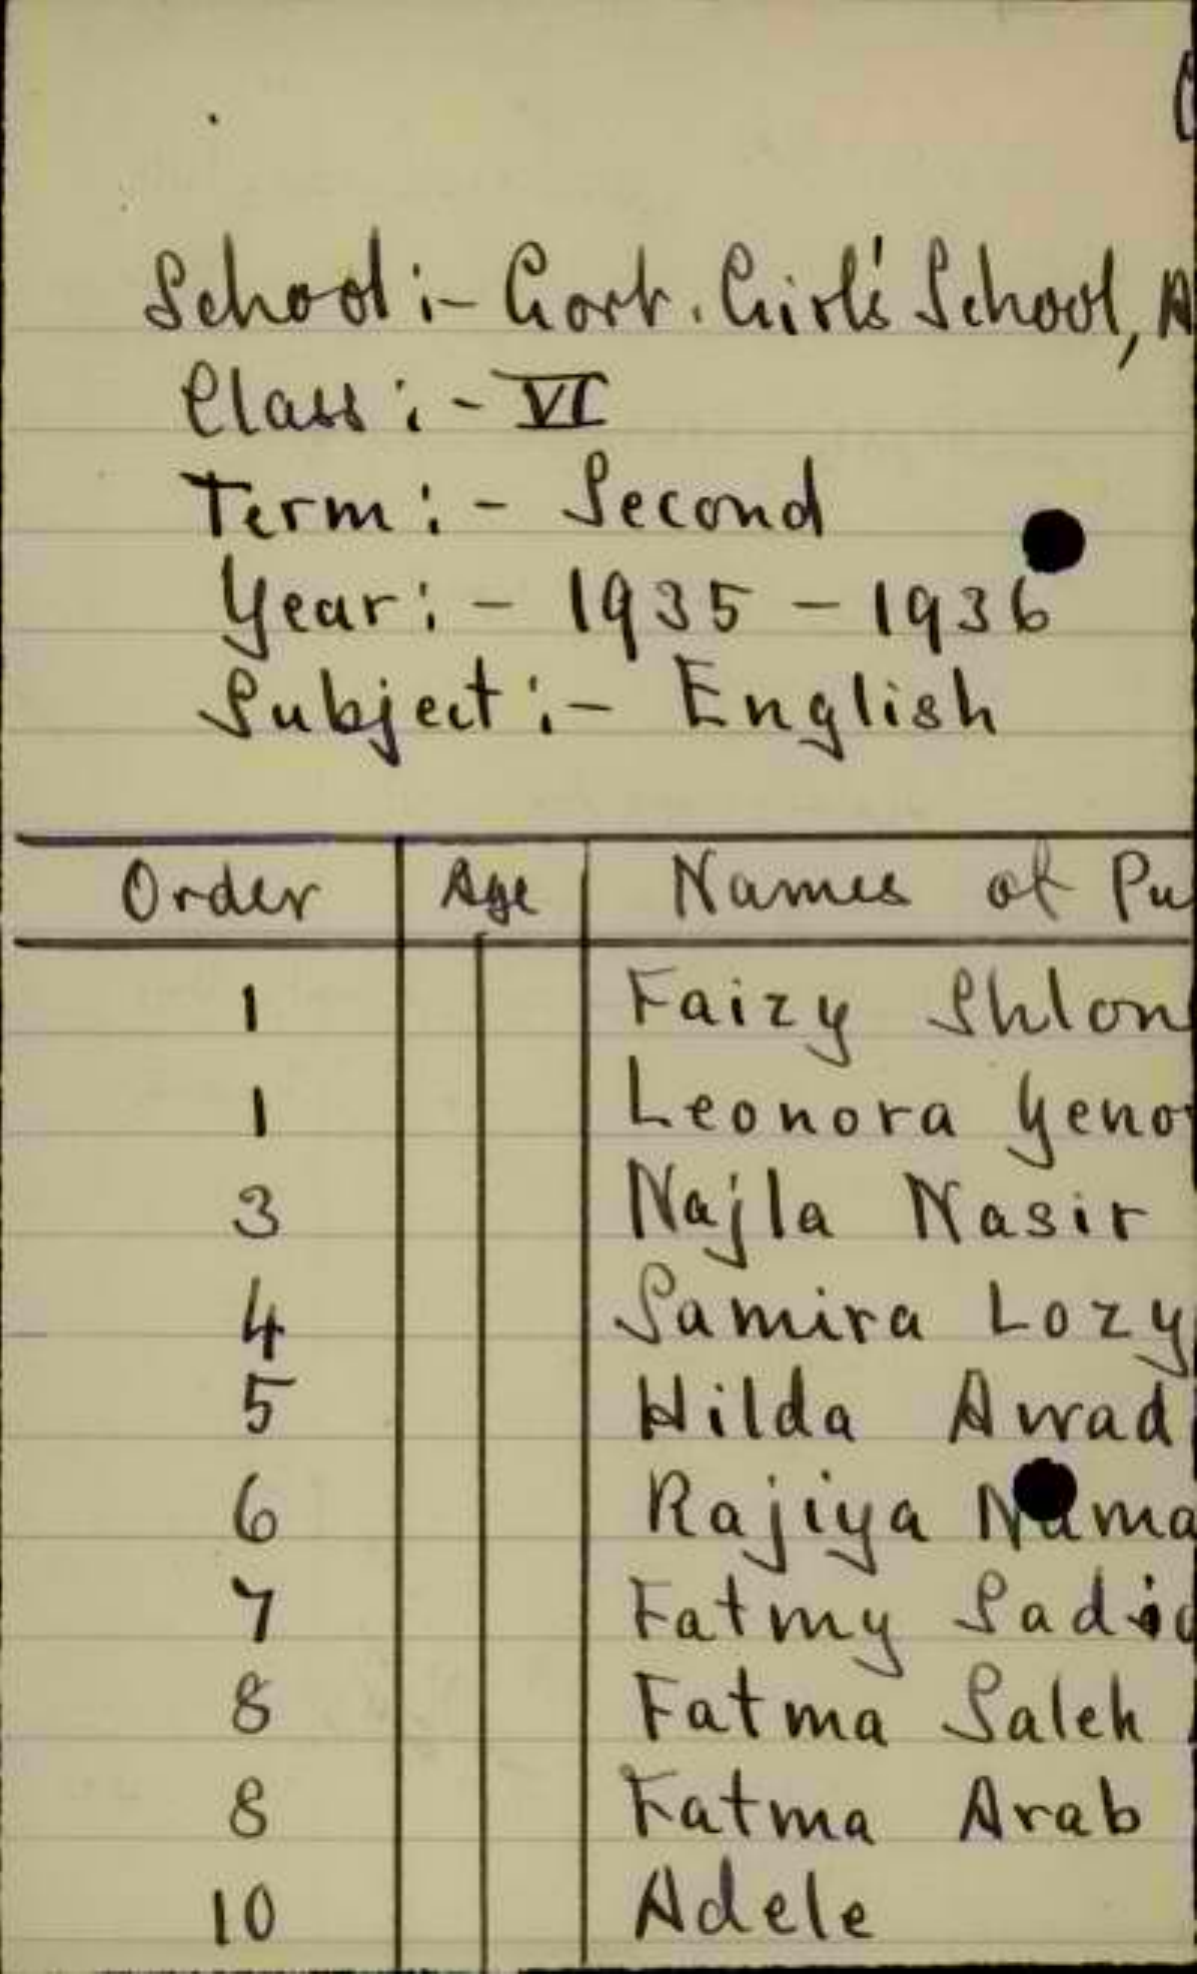 School :- Govt. Girls' School, A
Class :- VI
Term :- Second
Year :- 1935 - 1936
Subject :- English
Order Age Names of Pu
1 Faizy Shlon
1 Leonora Yeno
3 Najla Nasir
4 Samira Lozy
5 Hilda Awad
6 Rajiya Nama
7 Fatmy Sadiq
8 Fatma Saleh
8 Fatma Arab
10 Adele